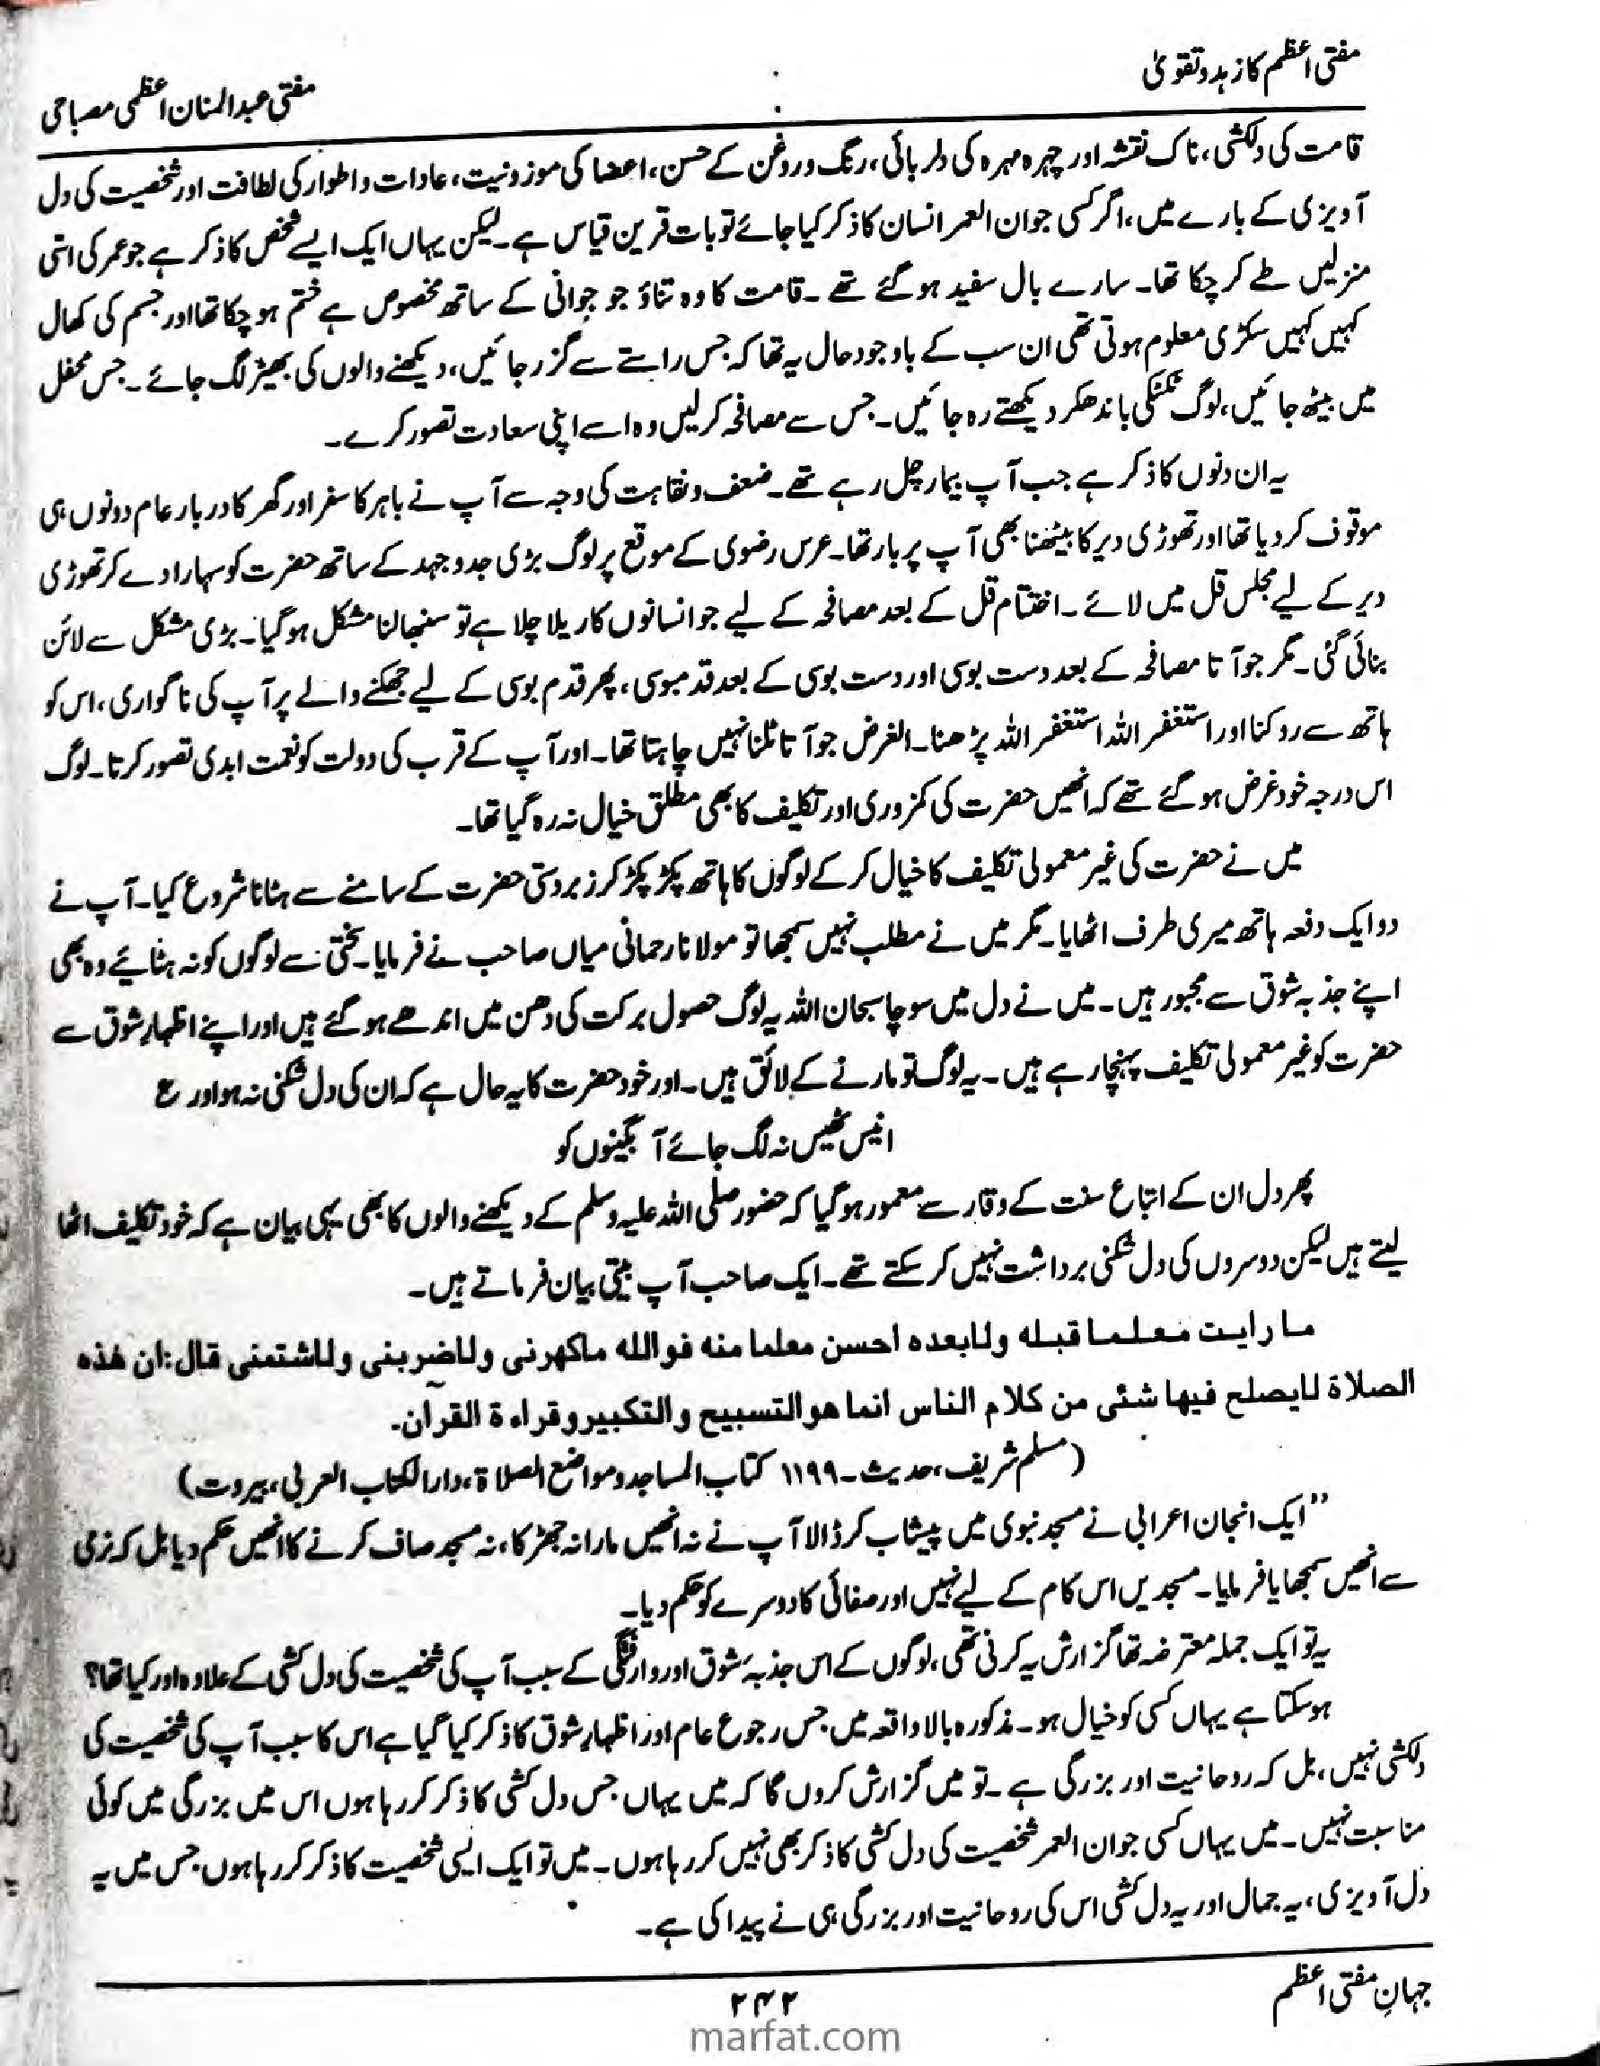 مفتی اعظم کا زہد و تقویٰ
مفتی عبدالمنان اعظمی مصباحی
قامت کی دلکشی، ناک نقشہ اور چہرہ مہرہ کی دلربائی، رنگ و روغن کے حسن، اعضا کی موزونیت، عادات و اطوار کی لطافت اور شخصیت کی دل
آویزی کے بارے میں، اگر کسی جوان العمر انسان کا ذکر کیا جائے تو بات قرین قیاس ہے۔ لیکن یہاں ایک ایسے شخص کا ذکر ہے جو عمر کی اتنی
منزلیں طے کر چکا تھا۔ سارے بال سفید ہو گئے تھے۔ قامت کا وہ تناؤ جو جوانی کے ساتھ مخصوص ہے ختم ہو چکا تھا اور جسم کی کھال
کہیں کہیں سکڑی معلوم ہوتی تھی ان سب کے باوجود حال یہ تھا کہ جس راستے سے گزر جائیں، دیکھنے والوں کی بھیڑ لگ جائے۔ جس محفل
میں بیٹھ جائیں، لوگ ٹکٹکی باندھ کر دیکھتے رہ جائیں۔ جس سے مصافحہ کر لیں وہ اسے اپنی سعادت تصور کرے۔
یہ ان دنوں کا ذکر ہے جب آپ بیمار چل رہے تھے۔ ضعف و نقاہت کی وجہ سے آپ نے باہر کا سفر اور گھر کا دربار عام دونوں ہی
موقوف کر دیا تھا اور تھوڑی دیر کا بیٹھنا بھی آپ پر بار تھا۔ عرس رضوی کے موقع پر لوگ بڑی جدوجہد کے ساتھ حضرت کو سہارا دے کر تھوڑی
دیر کے لیے مجلس قل میں لائے۔ اختتام قل کے بعد مصافحہ کے لیے جو انسانوں کا ریلا چلا ہے تو سنبھالنا مشکل ہو گیا۔ بڑی مشکل سے لائن
بنائی گئی۔ مگر جو آتا مصافحہ کے بعد دست بوسی اور دست بوسی کے بعد قدمبوسی، پھر قدم بوسی کے لیے جھکنے والے پر آپ کی ناگواری، اس کو
ہاتھ سے روکنا اور استغفر اللہ استغفر اللہ پڑھنا۔ الغرض جو آتا ٹلنا نہیں چاہتا تھا۔ اور آپ کے قرب کی دولت کو نعمت ابدی تصور کرتا۔ لوگ
اس درجہ خود غرض ہو گئے تھے کہ انھیں حضرت کی کمزوری اور تکلیف کا بھی مطلق خیال نہ رہ گیا تھا۔
میں نے حضرت کی غیر معمولی تکلیف کا خیال کر کے لوگوں کا ہاتھ پکڑ پکڑ کر زبردستی حضرت کے سامنے سے ہٹانا شروع کیا۔ آپ نے
دو ایک دفعہ ہاتھ میری طرف اٹھایا۔ مگر میں نے مطلب نہیں سمجھا تو مولانا رحمانی میاں صاحب نے فرمایا۔ سختی سے لوگوں کو نہ ہٹائیے وہ بھی
اپنے جذبہ شوق سے مجبور ہیں۔ میں نے دل میں سوچا سبحان اللہ یہ لوگ حصول برکت کی دھن میں اندھے ہو گئے ہیں اور اپنے اظہارِ شوق سے
حضرت کو غیر معمولی تکلیف پہنچا رہے ہیں۔ یہ لوگ تو مارنے کے لائق ہیں۔ اور خود حضرت کا یہ حال ہے کہ ان کی دل شکنی نہ ہو اور ع
انیس ٹھیس نہ لگ جائے آبگینوں کو
پھر دل ان کے اتباع سنت کے وقار سے معمور ہو گیا کہ حضور صلی اللہ علیہ وسلم کے دیکھنے والوں کا بھی یہی بیان ہے کہ خود تکلیف اٹھا
لیتے ہیں لیکن دوسروں کی دل شکنی برداشت نہیں کر سکتے تھے۔ ایک صاحب آپ بیتی بیان فرماتے ہیں۔
ما رایت معلما قبله ولابعده احسن معلما منه فوالله ماكهرنی ولاضربنی ولاشتمنی قال: ان هٰذه
الصلاة لایصلح فیها شئی من کلام الناس انما هو التسبیح والتکبیر وقراءة القرآن۔
(مسلم شریف، حدیث۔ ۱۱۹۹ کتاب المساجد و مواضع الصلاة، دار الکتاب العربی، بیروت)
”ایک انجان اعرابی نے مسجد نبوی میں پیشاب کر ڈالا آپ نے نہ انھیں مارا نہ جھڑکا، نہ مسجد صاف کرنے کا انھیں حکم دیا بل کہ نرمی
سے انھیں سمجھایا فرمایا۔ مسجدیں اس کام کے لیے نہیں اور صفائی کا دوسرے کو حکم دیا۔
یہ تو ایک جملہ معترضہ تھا گزارش یہ کرنی تھی، لوگوں کے اس جذبۂ شوق اور وارفتگی کے سبب آپ کی شخصیت کی دل کشی کے علاوہ اور کیا تھا؟
ہو سکتا ہے یہاں کسی کو خیال ہو۔ مذکورہ بالا واقعہ میں جس رجوع عام اور اظہارِ شوق کا ذکر کیا گیا ہے اس کا سبب آپ کی شخصیت کی
دلکشی نہیں، بل کہ روحانیت اور بزرگی ہے۔ تو میں گزارش کروں گا کہ میں یہاں جس دل کشی کا ذکر کر رہا ہوں اس میں بزرگی میں کوئی
مناسبت نہیں۔ میں یہاں کسی جوان العمر شخصیت کی دل کشی کا ذکر بھی نہیں کر رہا ہوں۔ میں تو ایک ایسی شخصیت کا ذکر کر رہا ہوں جس میں یہ
دل آویزی، یہ جمال اور یہ دل کشی اس کی روحانیت اور بزرگی ہی نے پیدا کی ہے۔
جہانِ مفتی اعظم
۲۴۲
marfat.com